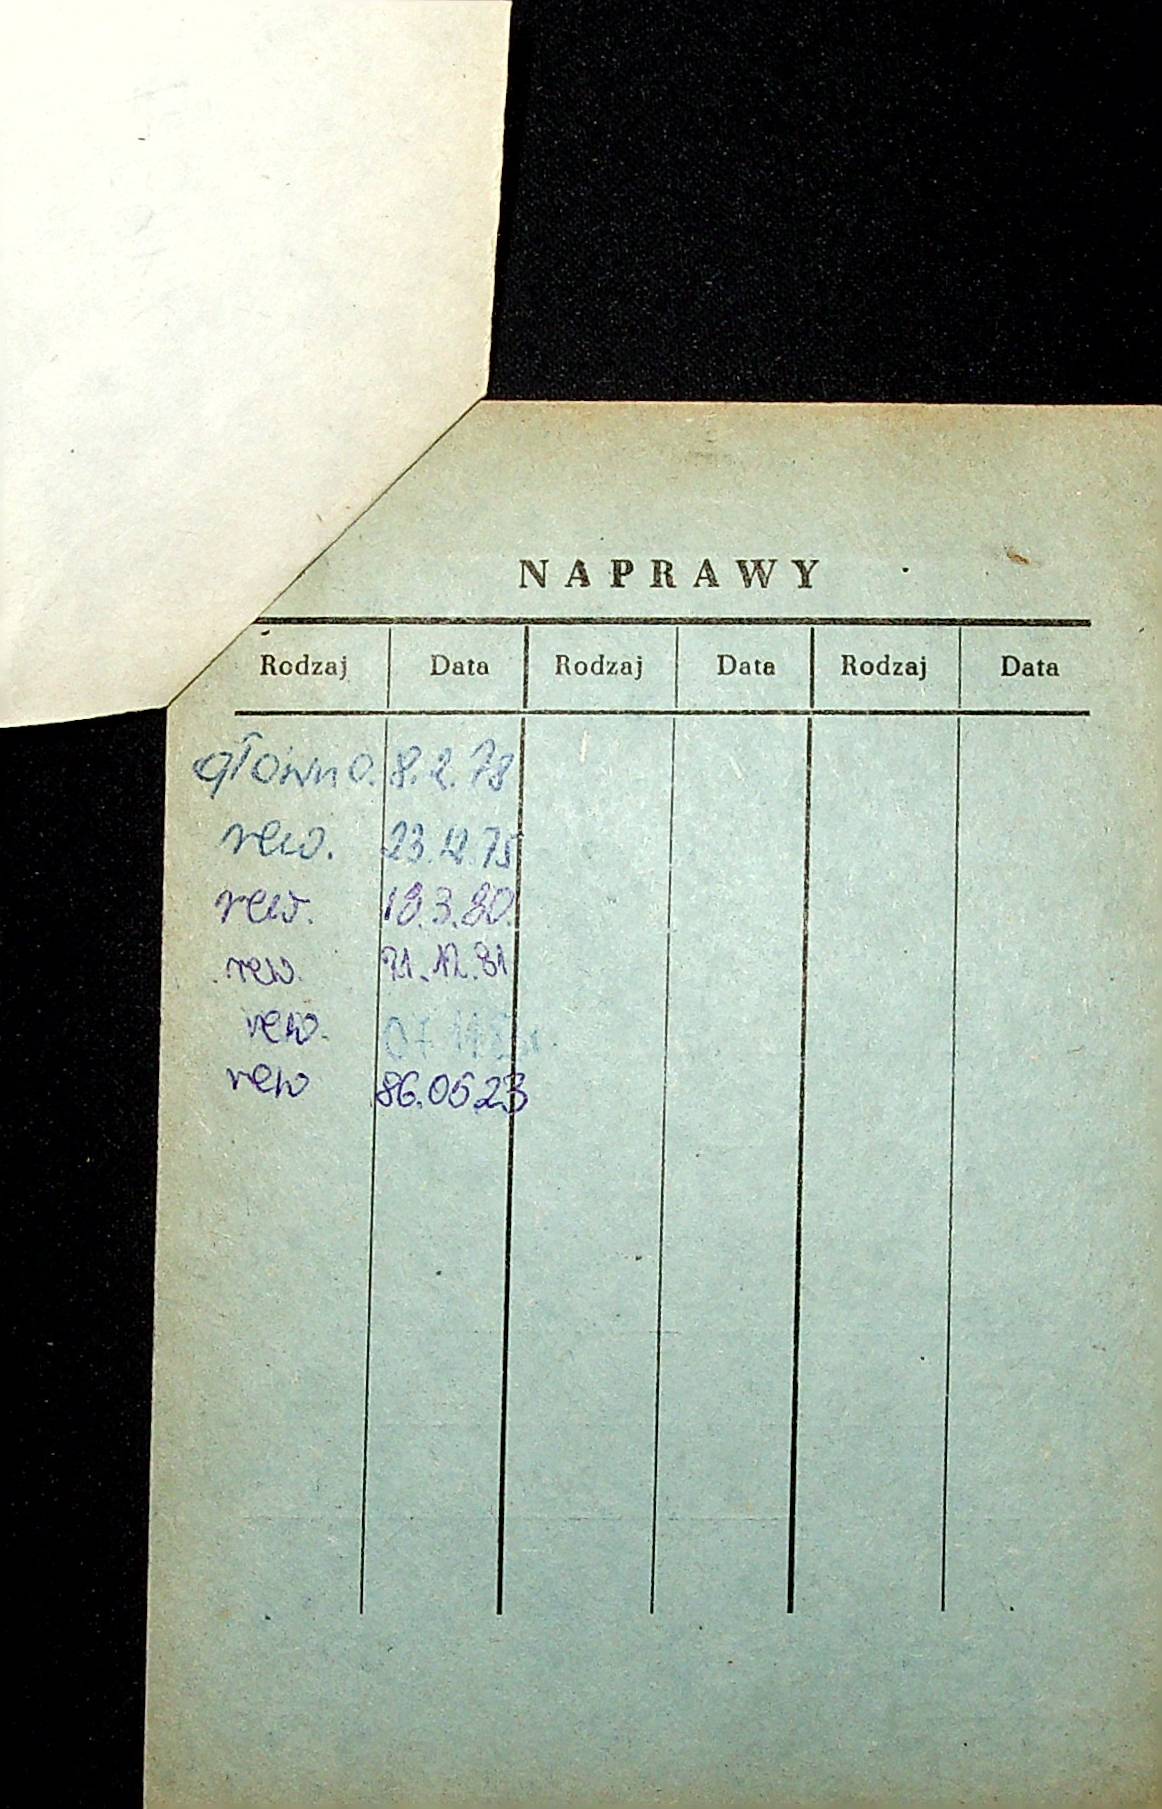 NAPRAWY
Rodzaj Data Rodzaj Data Rodzaj Data
główna. 8.2.78
rew. 23.12.75
rew. 18.3.80.
rew. 21.12.81
rew.
rew 86.05.23